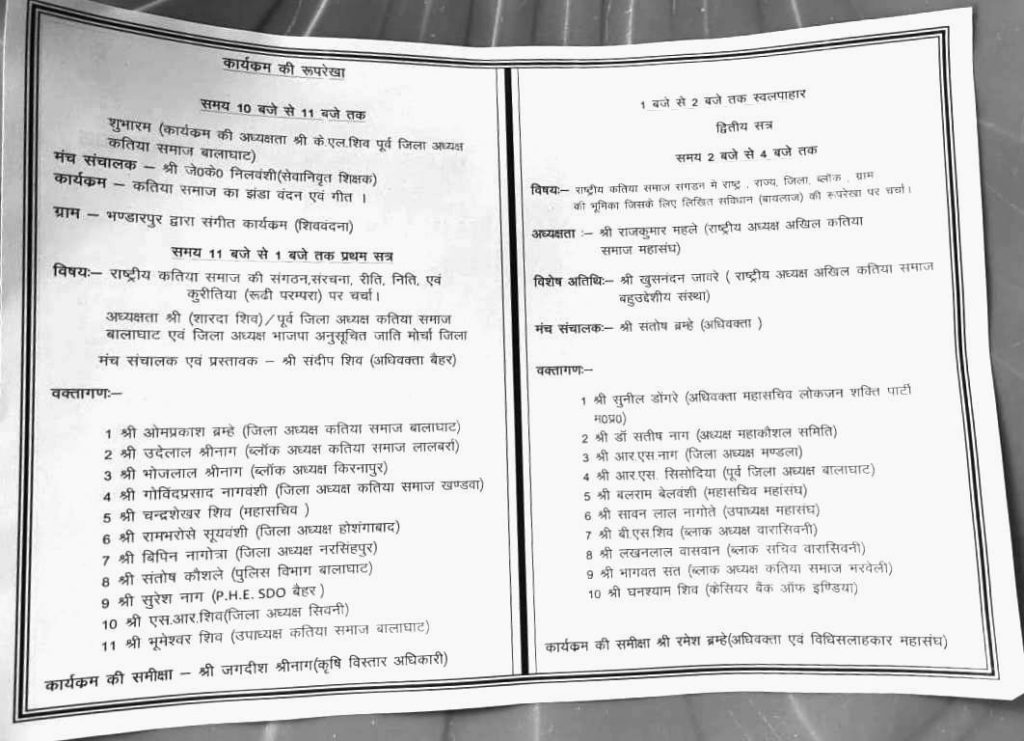 कार्यक्रम की रूपरेखा
समय 10 बजे से 11 बजे तक
शुभारम (कार्यक्रम की अध्यक्षता श्री के.एल.शिव पूर्व जिला अध्यक्ष
कतिया समाज बालाघाट)
मंच संचालक – श्री जे0के0 निलवंशी(सेवानिवृत शिक्षक)
कार्यक्रम – कतिया समाज का झंडा वंदन एवं गीत ।
ग्राम – भण्डारपुर द्वारा संगीत कार्यक्रम (शिववंदना)
समय 11 बजे से 1 बजे तक प्रथम सत्र
विषयः– राष्ट्रीय कतिया समाज की संगठन,संरचना, रीति, निति, एवं
कुरीतिया (रूढी परम्परा) पर चर्चा।
अध्यक्षता श्री (शारदा शिव)/पूर्व जिला अध्यक्ष कतिया समाज
बालाघाट एवं जिला अध्यक्ष भाजपा अनुसूचित जाति मोर्चा जिला
मंच संचालक एवं प्रस्तावक – श्री संदीप शिव (अधिवक्ता बैहर)
वक्तागणः–
1 श्री ओमप्रकाश ब्रम्हे (जिला अध्यक्ष कतिया समाज बालाघाट)
2 श्री उदेलाल श्रीनाग (ब्लॉक अध्यक्ष कतिया समाज लालबर्रा)
3 श्री भोजलाल श्रीनाग (ब्लॉक अध्यक्ष किरनापुर)
4 श्री गोविंदप्रसाद नागवंशी (जिला अध्यक्ष कतिया समाज खण्डवा)
5 श्री चन्द्रशेखर शिव (महासचिव )
6 श्री रामभरोसे सूयवंशी (जिला अध्यक्ष होशंगाबाद)
7 श्री बिपिन नागोत्रा (जिला अध्यक्ष नरसिंहपुर)
8 श्री संतोष कौशले (पुलिस विभाग बालाघाट)
9 श्री सुरेश नाग (P.H.E. SDO बैहर )
10 श्री एस.आर.शिव(जिला अध्यक्ष सिवनी)
11 श्री भूमेश्वर शिव (उपाध्यक्ष कतिया समाज बालाघाट)
कार्यक्रम की समीक्षा – श्री जगदीश श्रीनाग(कृषि विस्तार अधिकारी)
1 बजे से 2 बजे तक स्वलपाहार
द्वितीय सत्र
समय 2 बजे से 4 बजे तक
विषयः– राष्ट्रीय कतिया समाज सगडन मे राष्ट्र , राज्य, जिला, ब्लॉक , ग्राम
की भूमिका जिसके लिए लिखित सविधान (बायलाज) की रूपरेखा पर चर्चा।
अध्यक्षता :– श्री राजकुमार महले (राष्ट्रीय अध्यक्ष अखिल कतिया
समाज महासंघ)
विशेष अतिथिः– श्री खुसनंदन जावरे ( राष्ट्रीय अध्यक्ष अखिल कतिया समाज
बहुउद्देशीय संस्था)
मंच संचालकः– श्री संतोष ब्रम्हे (अधिवक्ता )
वक्तागणः–
1 श्री सुनील डोंगरे (अधिवक्ता महासचिव लोकजन शक्ति पार्टी
म0प्र0)
2 श्री डॉ सतीष नाग (अध्यक्ष महाकौशल समिति)
3 श्री आर.एस.नाग (जिला अध्यक्ष मण्डला)
4 श्री आर.एस. सिसोदिया (पूर्व जिला अध्यक्ष बालाघाट)
5 श्री बलराम बेलवंशी (महासचिव महांसघ)
6 श्री सावन लाल नागोते (उपाध्यक्ष महासंघ)
7 श्री बी.एस.शिव (ब्लाक अध्यक्ष वारासिवनी)
8 श्री लखनलाल वासवान (ब्लाक सचिव वारासिवनी)
9 श्री भागवत सत (ब्लाक अध्यक्ष कतिया समाज भरवेली)
10 श्री घनश्याम शिव (केसियर बैंक ऑफ इण्डिया)
कार्यक्रम की समीक्षा श्री रमेश ब्रम्हे(अधिवक्ता एवं विधिसलाहकार महासंघ)